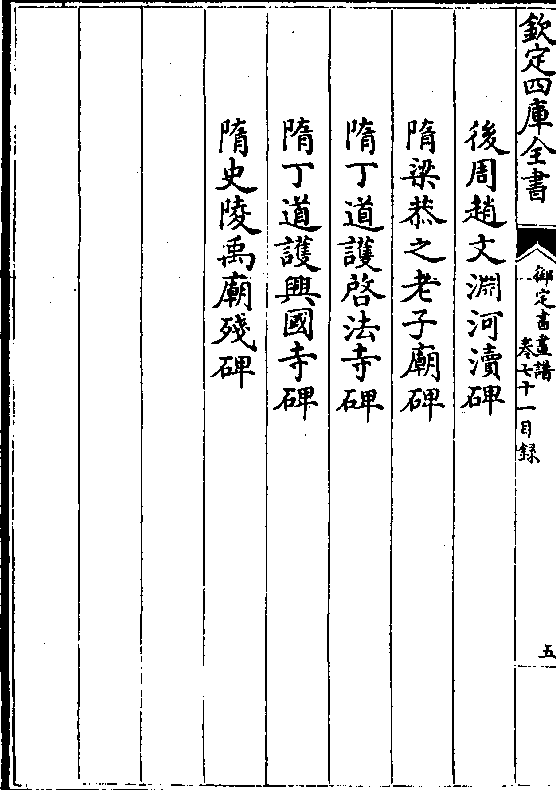 欽定四庫全書
御定書畫譜
卷七十一目録
五
後周趙文淵河瀆碑
隋梁恭之老子廟碑
隋丁道護啓法寺碑
隋丁道護興國寺碑
隋史陵禹廟殘碑